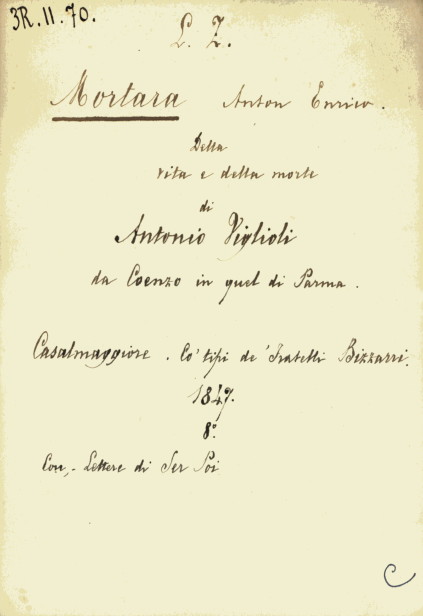 3R.11.70.
L. Z.
Mortara Anton Enrico.
Della
vita e della morte
di
Antonio Viglioli
da Coenzo in quel di Parma.
Casalmaggiore. Co' tipi de' Fratelli Bizzarri.
1847.
8º.
Con,- Lettere di Ser Poi
C